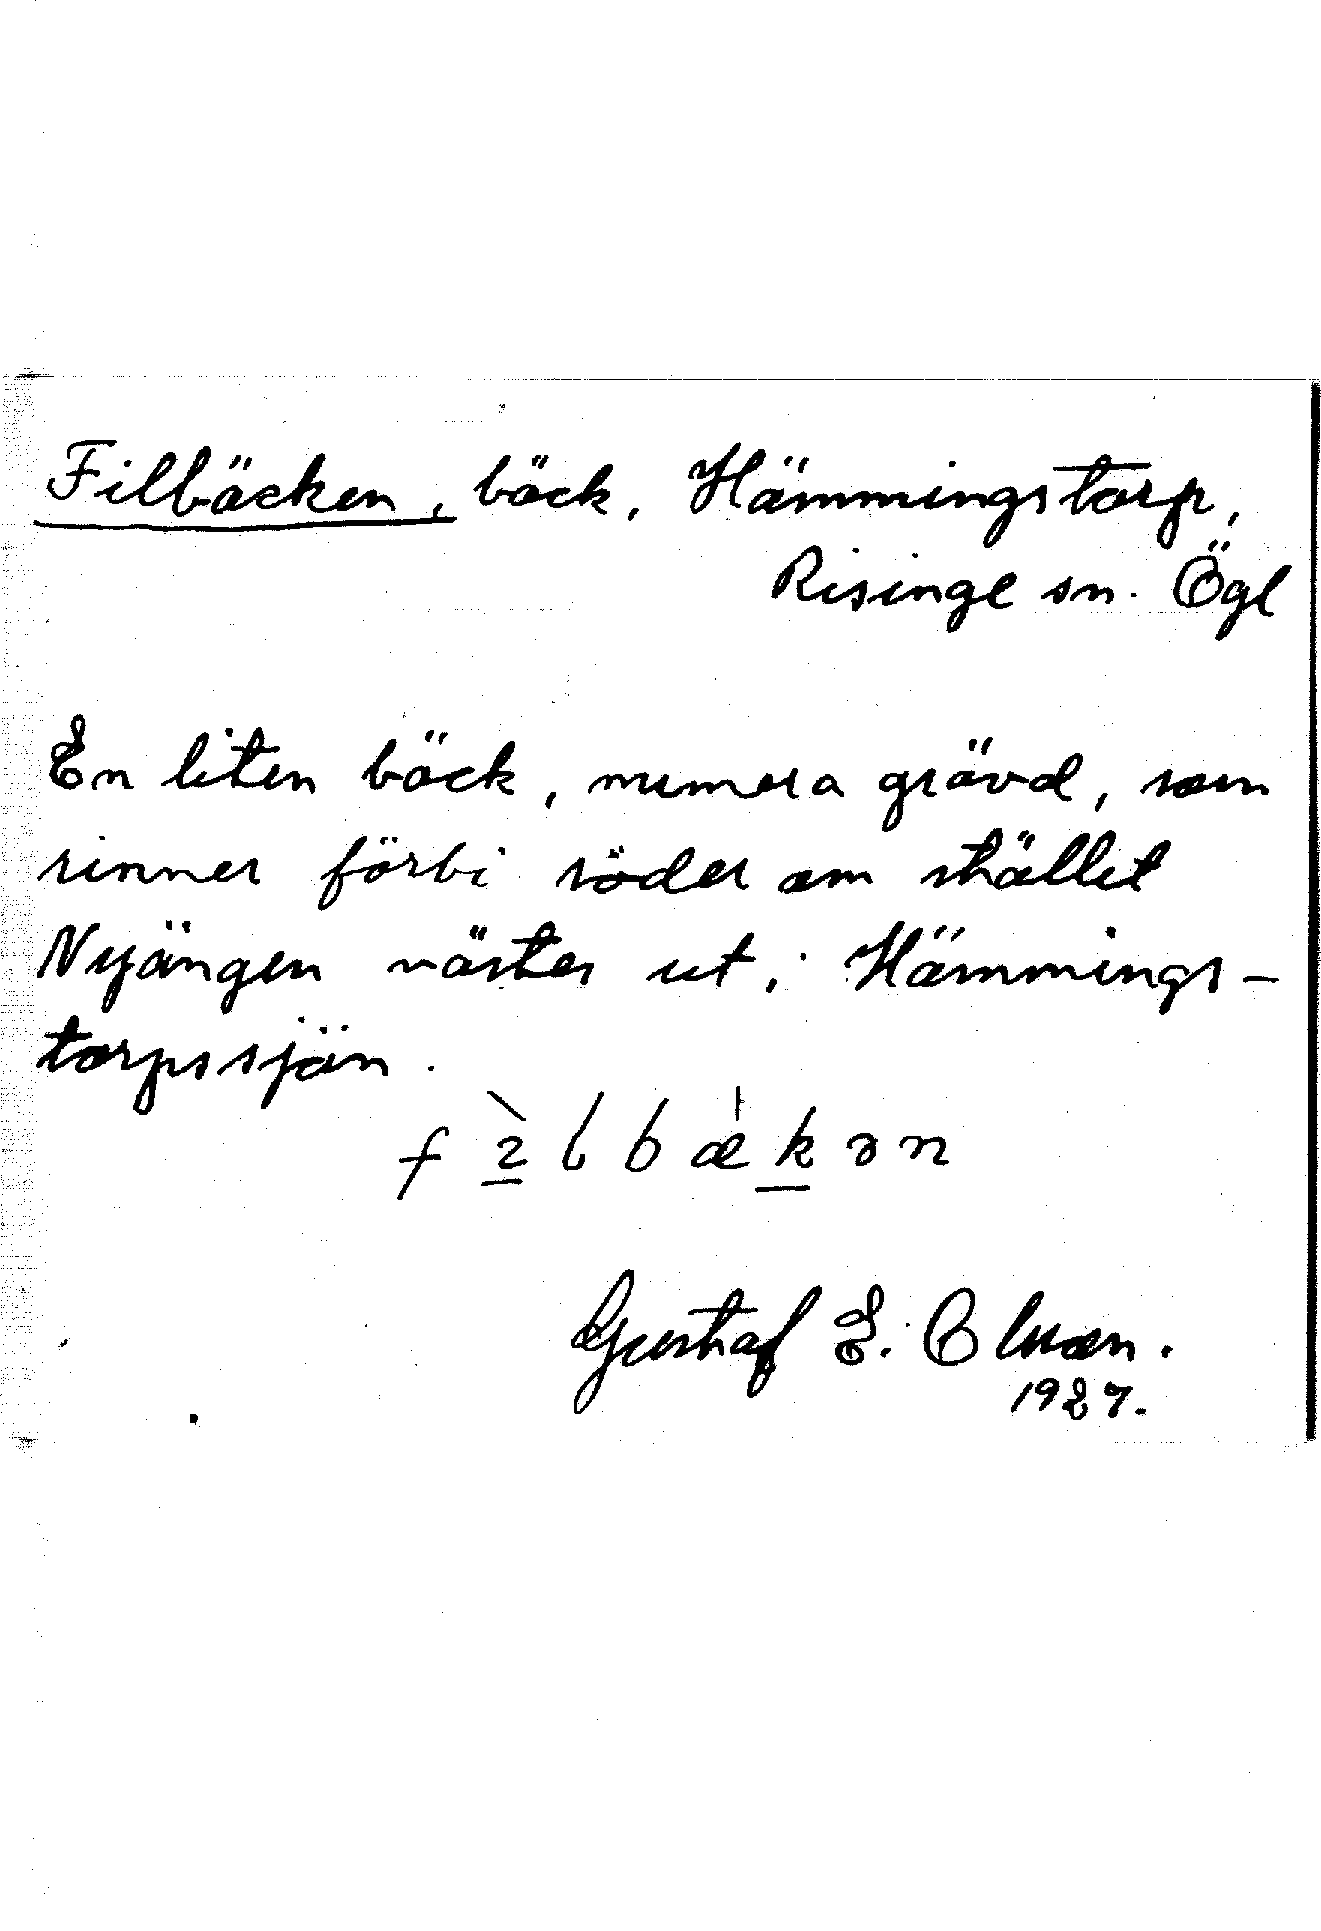 Filbäcken, bäck, Hämmingstorp,
Risinge sn. Ögl
En liten bäck, numera grävd, som
rinner förbi söder om stället
Nyängen väster ut, i Hämmings-
torpssjön.
Gustaf E.
1927.